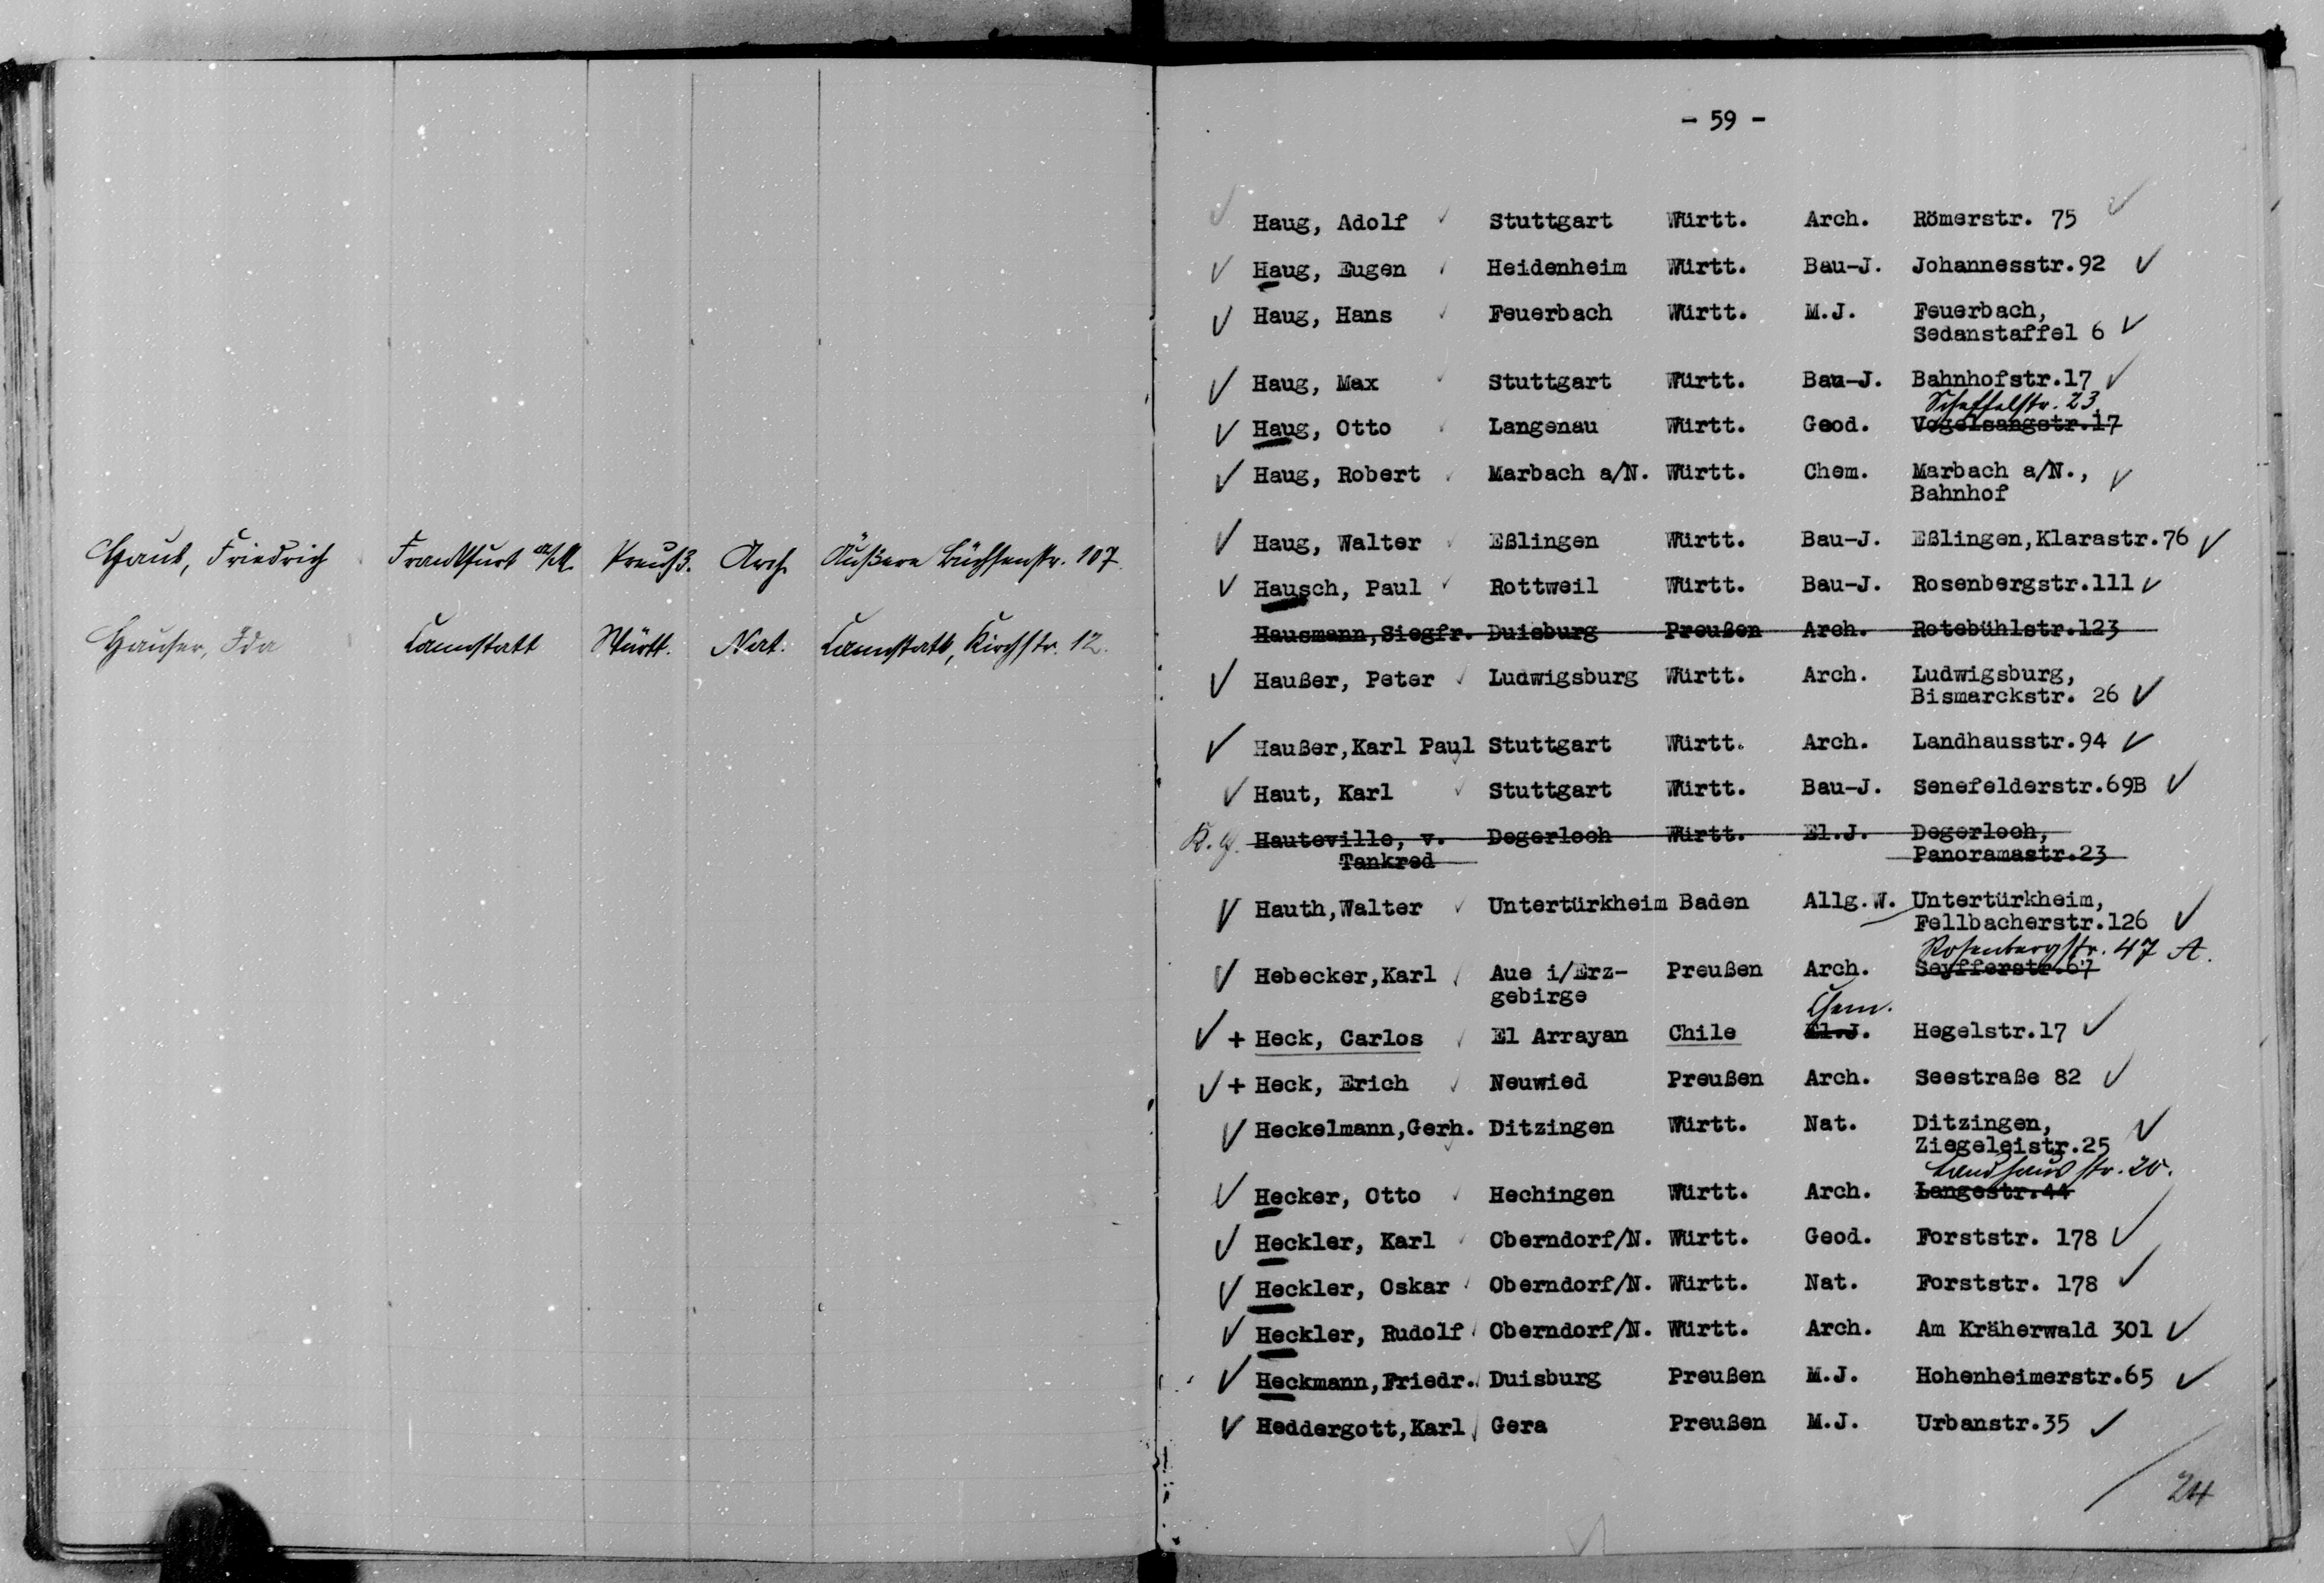 Haub, Friedrich Frankfurt a/M. Preuß. Arch. Äußere Büchsenstr. 107.
Hauser, Ida Cannstatt Württ. Nat. Cannstatt, Kirchstr. 12.
- 59 -
✓ Haug, Adolf ✓ Stuttgart Württ. Arch. Römerstr. 75 ✓
✓ Haug, Eugen ✓ Heidenheim Württ. Bau-J. Johannesstr.92 ✓
✓ Haug, Hans ✓ Feuerbach Württ. M.J. Feuerbach,
Sedanstaffel 6 ✓
✓ Haug, Max ✓ Stuttgart Württ. Bau-J. Bahnhofstr.17 ✓
Scheffelstr. 23
✓ Haug, Otto ✓ Langenau Württ. Geod. Vogelsangstr.17
✓ Haug, Robert ✓ Marbach a/N. Württ. Chem. Marbach a/N., ✓
Bahnhof
✓ Haug, Walter ✓ Eßlingen Württ. Bau-J. Eßlingen,Klarastr.76 ✓
✓ Hausch, Paul ✓ Rottweil Württ. Bau-J. Rosenbergstr.111 ✓
Hausmann,Siegfr. Duisburg Preußen Arch. Rotebühlstr.123
✓ Haußer, Peter ✓ Ludwigsburg Württ. Arch. Ludwigsburg,
Bismarckstr. 26 ✓
✓ Haußer,Karl Paul Stuttgart Württ. Arch. Landhausstr.94 ✓
✓ Haut, Karl ✓ Stuttgart Württ. Bau-J. Senefelderstr.69B ✓
Hauteville, v. Degerloch Württ. El.J. Degerloch,
Tankred Panoramastr.23
✓ Hauth,Walter ✓ Untertürkheim Baden Allg.W. Untertürkheim,
Fellbacherstr.126 ✓
Rosenbergstr. 47 A.
✓ Hebecker,Karl ✓ Aue i/Erz- Preußen Arch. Seyfferstr.67
gebirge
Chem.
✓ + Heck, Carlos ✓ El Arrayan Chile El.J. Hegelstr.17 ✓
✓ + Heck, Erich ✓ Neuwied Preußen Arch. Seestraße 82 ✓
✓ Heckelmann,Gerh. Ditzingen Württ. Nat. Ditzingen, ✓
Ziegeleistr.25
Landhausstr. 20.
✓ Hecker, Otto ✓ Hechingen Württ. Arch. Langestr.44
✓ Heckler, Karl ✓ Oberndorf/N. Württ. Geod. Forststr. 178 ✓
✓ Heckler, Oskar ✓ Oberndorf/N. Württ. Nat. Forststr. 178 ✓
✓ Heckler, Rudolf ✓ Oberndorf/N. Württ. Arch. Am Kräherwald 301 ✓
✓ Heckmann,Friedr. Duisburg Preußen M.J. Hohenheimerstr.65 ✓
✓ Heddergott,Karl ✓ Gera Preußen M.J. Urbanstr.35 ✓
24